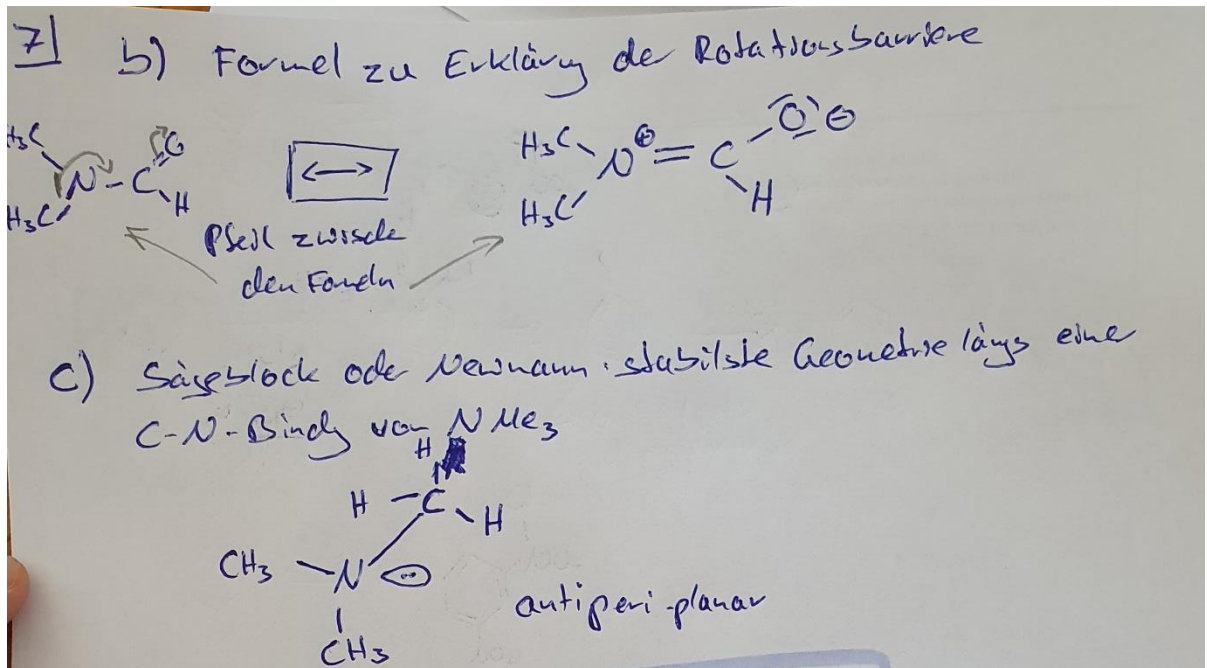 7] b) Formel zu Erklärung der Rotationsbarriere
H₃C N - C O H H₃C
<-->
H₃C N⊕ = C - O ⊖ H H₃C
Pfeil zwische
den Formeln
c) Sägeblock oder Newmann. stabilste Geometrie längs einer
C-N-Bindg von NMe₃
H
H - C - H
CH₃ - N
CH₃
antiperi-planar